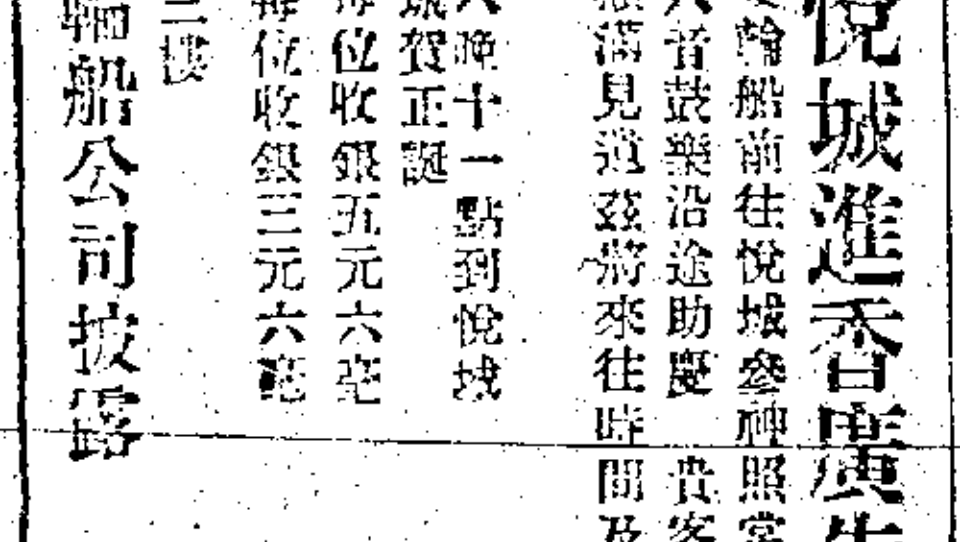 悅城進香廣告
輪船前往悅城參神照常
八音鼓樂沿途助慶　貴客
滿見道茲將來往時間及
晚十一點到悅城
賀正誕
每位收銀五元六毫
每位收銀三元六毫
三樓
輪船公司披露